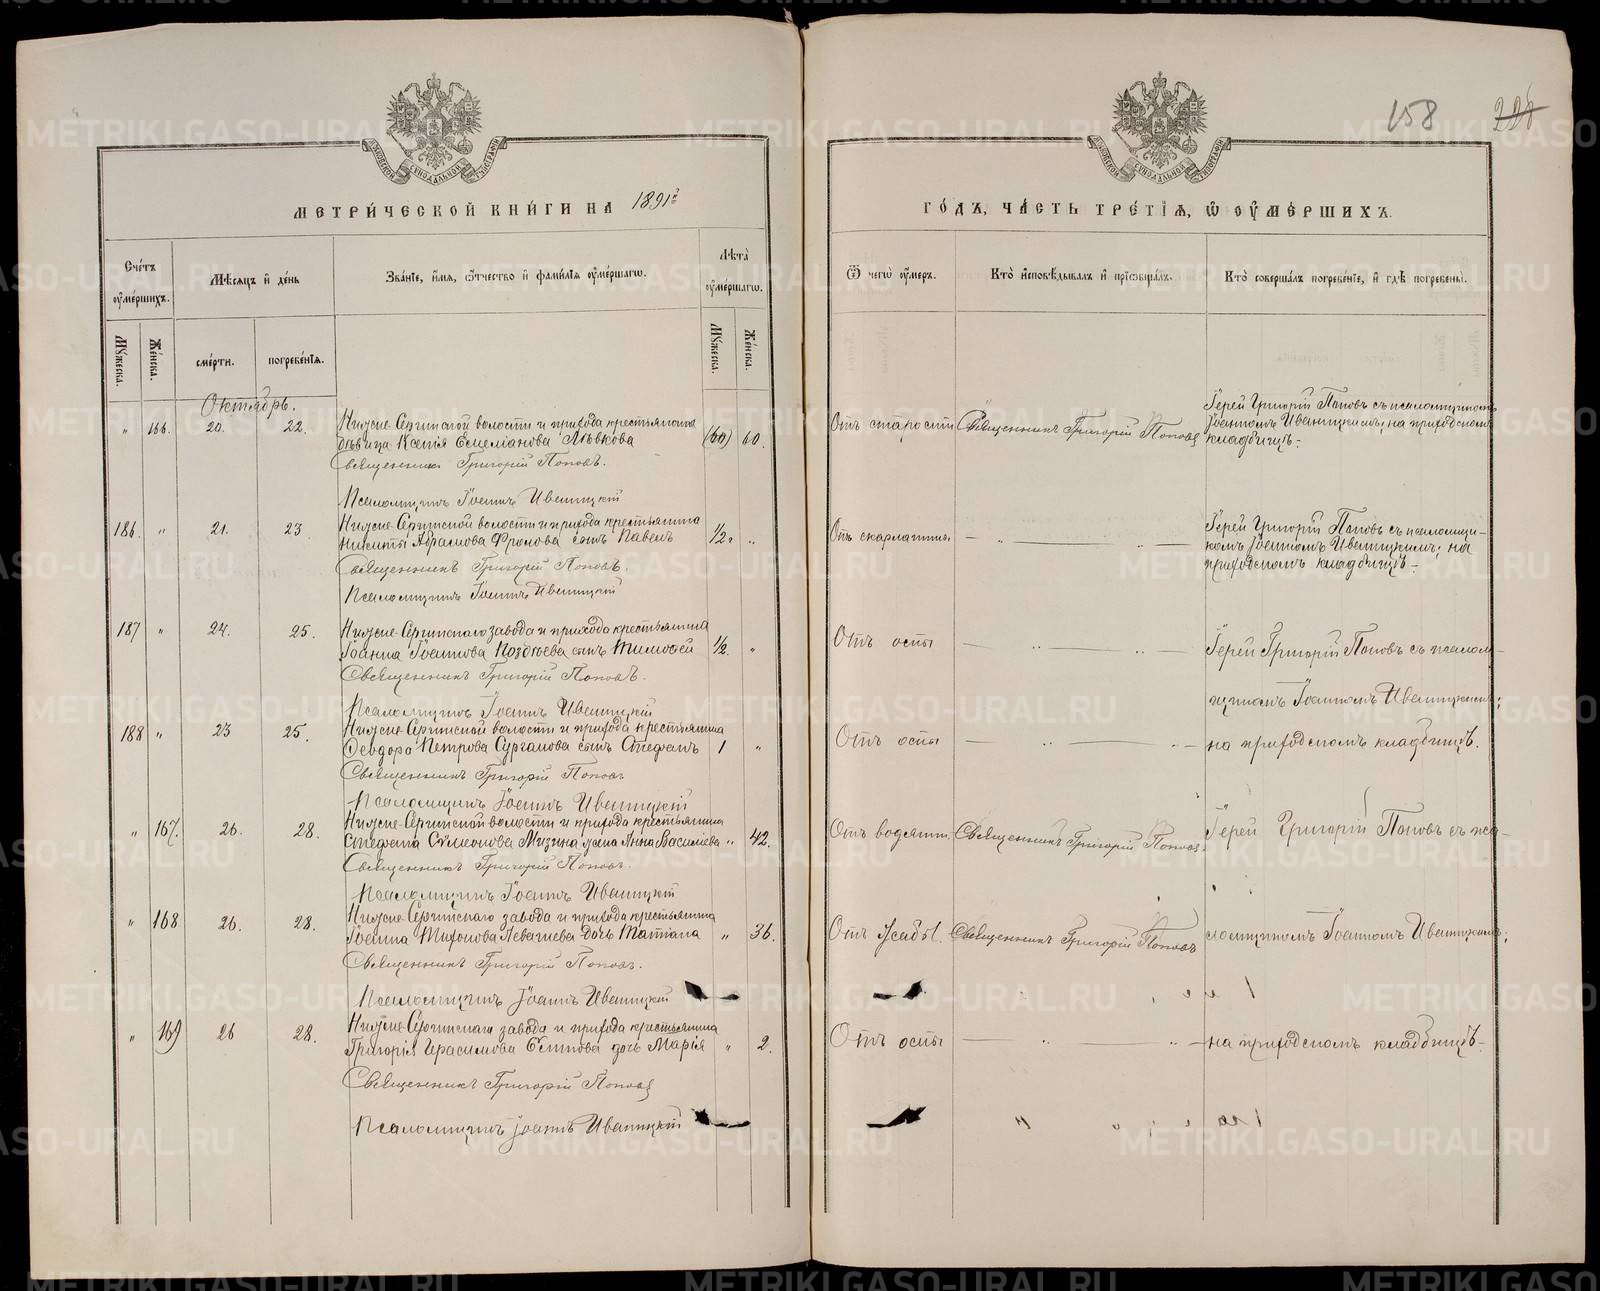 158
МЕТРИ́ЧЕСКОЙ КНИ́ГИ НА 1891 г.
ГО́ДЪ, ЧА́СТЬ ТРЕ́ТІѦ, Ѽ ОУМЕ́РШИХЪ.
Счетъ оумершихъ.
Мѣсяцъ и день
Званіе, имя, отчество и фамилія оумершаго.
Лѣта оумершаго.
Ѿ чего оумеръ.
Кто исповѣдывалъ и пріобщалъ.
Кто совершалъ погребеніе, и гдѣ погребены.
Мужеска.
Женска.
смерти.
погребенія.
Мужеска.
Женска.
Октябрь.
" 166. 20. 22. Нижне-Сергинской волости и прихода крестьянская
дѣвица Ксенія Емельянова Лѣвкова (60) 60.
Священникъ Григорій Поповъ.
Псаломщикъ Іоаннъ Ивеницкій
Отъ старости Священникъ Григорій Поповъ
Іерей Григорій Поповъ съ псаломщикомъ
Іоанномъ Ивеницкимъ; на приходскомъ
кладбищѣ.
186. " 21. 23. Нижне-Сергинской волости и прихода крестьянина
Никиты Абрамова Фролова сынъ Павелъ 1/2 г "
Священникъ Григорій Поповъ.
Псаломщикъ Іоаннъ Ивеницкій
Отъ скарлатины
Іерей Григорій Поповъ съ псаломщи-
комъ Іоанномъ Ивеницкимъ; на
приходскомъ кладбищѣ.
187 " 24. 25. Нижне-Сергинскаго завода и прихода крестьянина
Іоанна Іоаннова Поздѣева сынъ Тимофей 1/2. "
Священникъ Григорій Поповъ.
Псаломщикъ Іоаннъ Ивеницкій
Отъ оспы
Іерей Григорій Поповъ съ псалом-
щикомъ Іоанномъ Ивеницкимъ;
188 " 23 25. Нижне-Сергинской волости и прихода крестьянина
Ѳеодора Петрова Сурганова сынъ Стефанъ 1 "
Священникъ Григорій Поповъ
Псаломщикъ Іоаннъ Ивеницкій
Отъ оспы
на приходскомъ кладбищѣ.
" 167. 26. 28. Нижне-Сергинской волости и прихода крестьянина
Стефана Сѵмеонова Мизина жена Анна Васильева " 42.
Священникъ Григорій Поповъ.
Псаломщикъ Іоаннъ Ивеницкій
Отъ водянки. Священникъ Григорій Поповъ
Іерей Григорій Поповъ съ пса-
" 168 26. 28. Нижне-Сергинскаго завода и прихода крестьянина
Іоанна Тихонова дочь Татіана " 36.
Священникъ Григорій Поповъ.
Псаломщикъ Іоаннъ Ивеницкій
Отъ Священникъ Григорій Поповъ
ломщикомъ Іоанномъ Ивеницкимъ;
" 169 26 28. Нижне-Сергинскаго завода и прихода крестьянина
Григорія Герасимова дочь Марія " 2.
Священникъ Григорій Поповъ
Псаломщикъ Іоаннъ Ивеницкій
Отъ оспы
на приходскомъ кладбищѣ.
METRIKI.GASO-URAL.RU